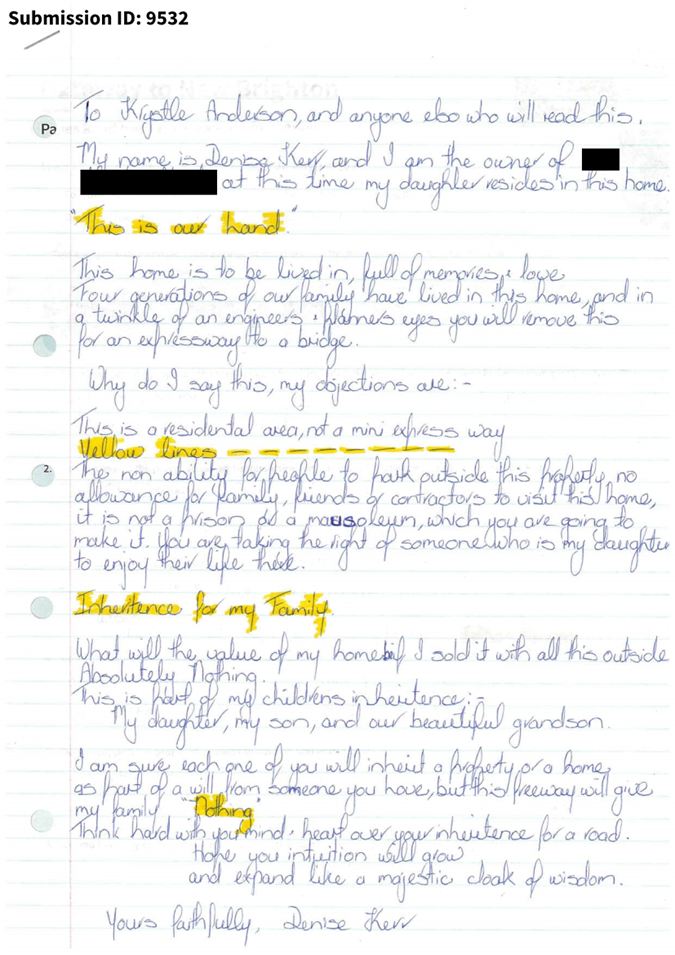 Submission ID: 9532
To Krystle Anderson, and anyone else who will read this.
Pa
My name is, Denise Kerr, and I am the owner of
at this time my daughter resides in this home.
"This is our hand"
This home is to be lived in, full of memories, & love
Four generations of our family have lived in this home, and in
a twinkle of an engineers & planners eyes you will remove this
for an expressway to a bridge.
Why do I say this, my objections are:-
This is a residental area, not a mini express way
Yellow lines — — — — — — — —
2.
The non ability for people to park outside this property, no
allowance for family, friends or contractors to visit this home,
it is not a prison or a mausoleum, which you are going to
make it. You are taking the right of someone who is my daughter
to enjoy their life there.
Inheritence for my Family.
What will the value of my home if I sold it with all this outside
Absolutely Nothing.
This is part of my childrens inheritence:-
My daughter, my son, and our beautiful grandson.
I am sure each one of you will inherit a property or a home
as part of a will from someone you have, but this freeway will give
my family "Nothing"
Think hard with your mind & heart over your inheritence for a road.
Hope you intuition will grow
and expand like a majestic cloak of wisdom.
Yours faithfully, Denise Kerr